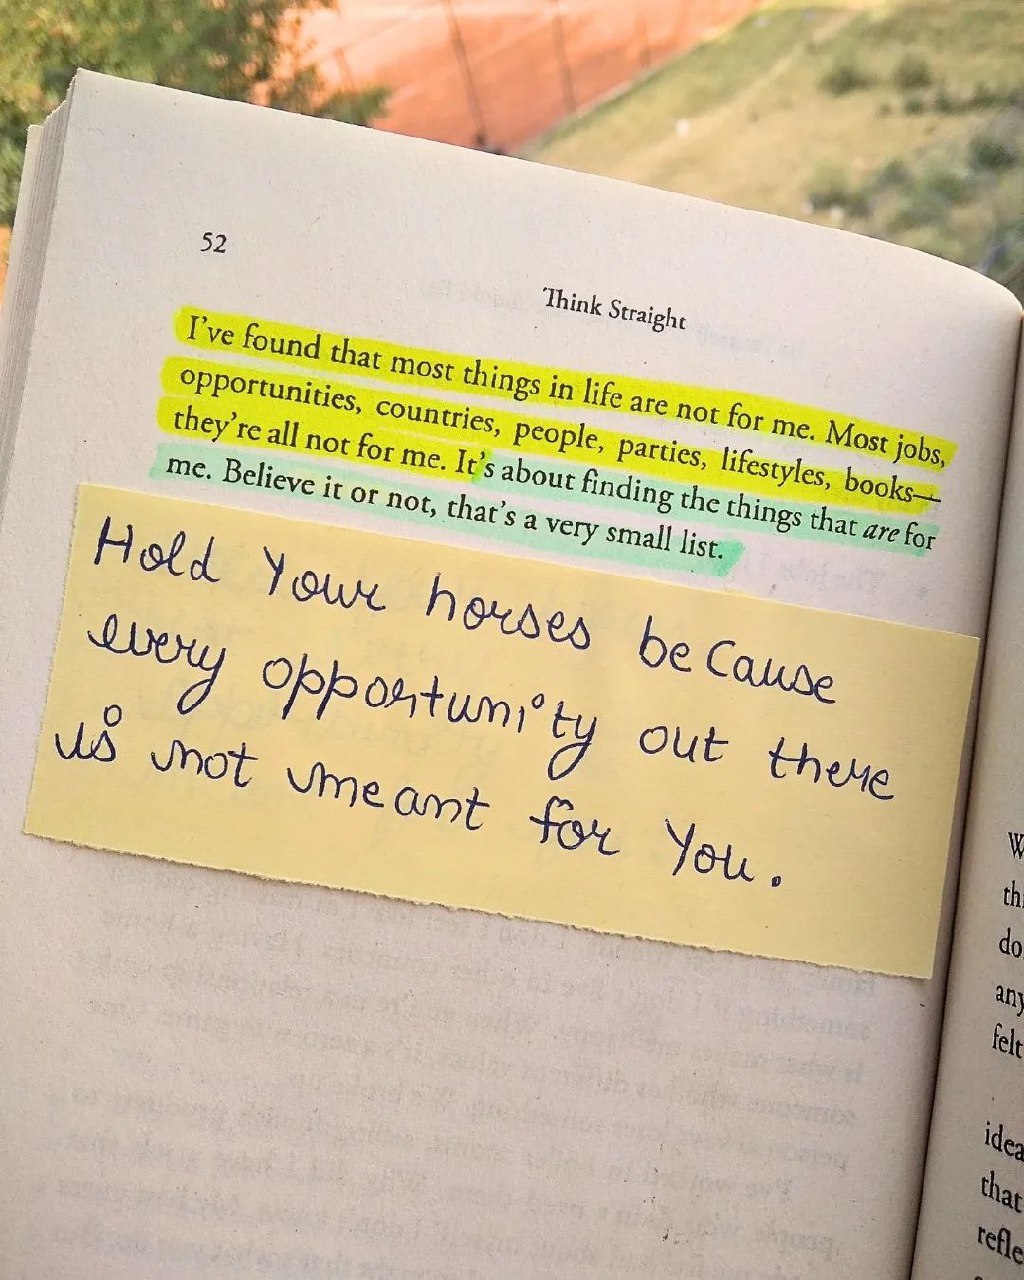 52
Think Straight
I've found that most things in life are not for me. Most jobs,
opportunities, countries, people, parties, lifestyles, books—
they're all not for me. It's about finding the things that are for
me. Believe it or not, that's a very small list.
Hold Your horses because
every opportunity out there
is not meant for You.
any
felt
idea
that